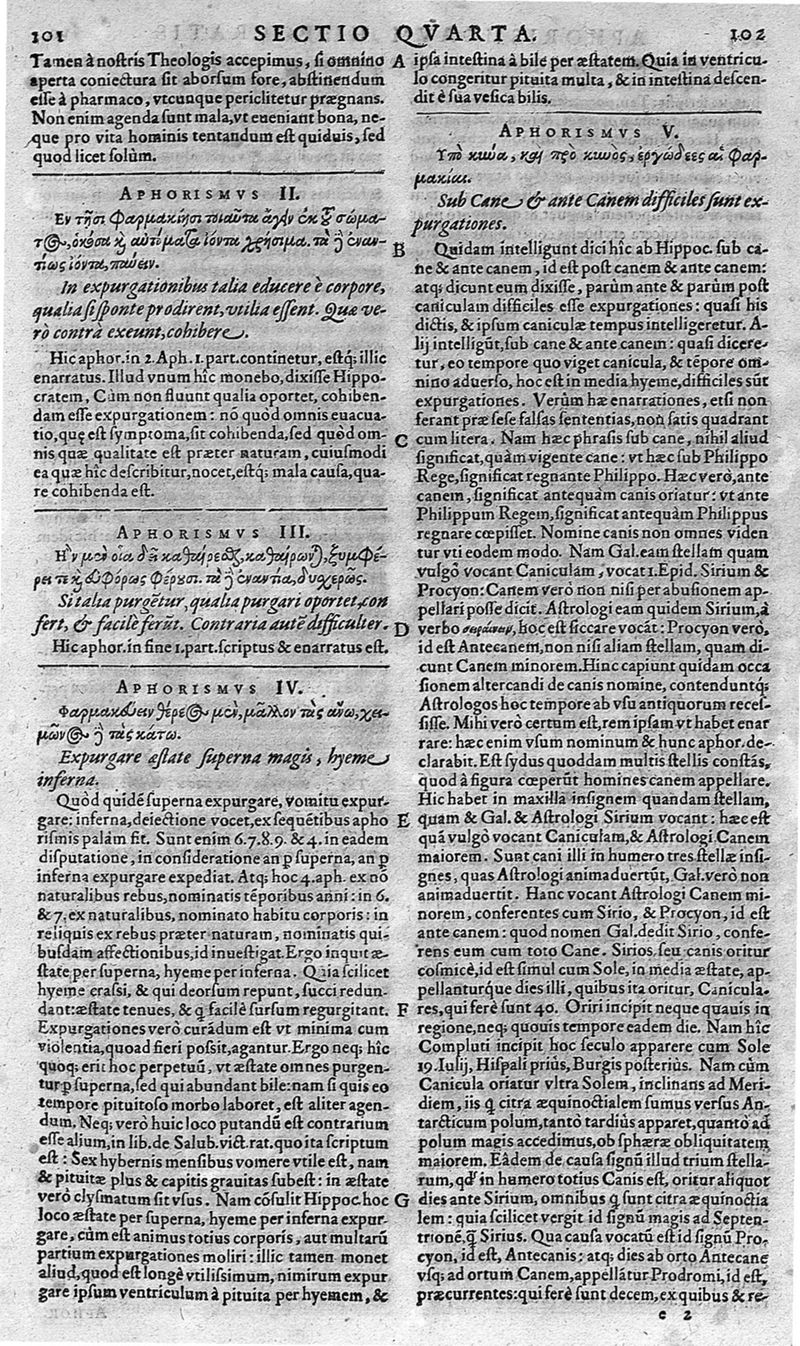 101 SECTIO QVARTA. 102
Tamen à nostris Theologis accepimus, si omnino
aperta coniectura sit aborsum fore, abstinendum
esse à pharmaco, vtcunque periclitetur prægnans.
Non enim agenda sunt mala, vt eueniant bona, ne-
que pro vita hominis tentandum est quiduis, sed
quod licet solùm.
APHORISMVS II.
Εν τῇσι φαρμακίῃσι τοιαῦτα ἄγειν ἐκ τοῦ σώμα-
τος, ὁκόσα καὶ αὐτόματα ἰόντα χρήσιμα. τὰ δὲ ἐναν-
τίως ἰόντα, παύειν.
In expurgationibus talia educere è corpore,
qualia si sponte prodirent, vtilia essent. Quæ ve-
rò contrà exeunt, cohibere.
Hic aphor. in 2. Aph. 1. part. continetur, estq; illic
enarratus. Illud vnum hîc monebo, dixisse Hippo-
cratem, Cùm non fluunt qualia oportet, cohiben-
dam esse expurgationem: nō quòd omnis euacua-
tio, quę est symptoma, sit cohibenda, sed quòd om-
nis quæ qualitate est præter naturam, cuiusmodi
ea quæ hîc describitur, nocet, estq; mala causa, qua-
re cohibenda est.
APHORISMVS III.
Ἢν μὲν οἷα δεῖ καθαίρεσθαι, καθαίρωνται, ξυμφέ-
ρει τε καὶ εὐφόρως φέρουσι. τὰ δὲ ἐναντία, δυσχερῶς.
Si talia purgētur, qualia purgari oportet, con
fert, & facilè ferūt. Contraria autē difficulter.
Hic aphor. in fine 1. part. scriptus & enarratus est.
APHORISMVS IV.
Φαρμακεύειν θέρεος μὲν, μᾶλλον τὰς ἄνω, χει-
μῶνος δὲ τὰς κάτω.
Expurgare æstate superna magis, hyeme
inferna.
Quòd quidē superna expurgare, vomitu expur-
gare: inferna, deiectione vocet, ex sequētibus apho
rismis palàm fit. Sunt enim 6. 7. 8. 9. & 4. in eadem
disputatione, in consideratione an p superna, an p
inferna expurgare expediat. Atq; hoc 4. aph. ex nō
naturalibus rebus, nominatis tēporibus anni: in 6.
& 7. ex naturalibus, nominato habitu corporis: in
reliquis ex rebus præter naturam, nominatis qui-
busdam affectionibus, id inuestigat. Ergo inquit æ-
state per superna, hyeme per inferna. Quia scilicet
hyeme crassi, & qui deorsum repunt, succi redun-
dant: æstate tenues, & q facilè sursum regurgitant.
Expurgationes verò curādum est vt minima cum
violentia, quoad fieri possit, agantur. Ergo neq; hîc
quoq; erit hoc perpetuū, vt æstate omnes purgen-
tur p superna, sed qui abundant bile: nam si quis eo
tempore pituitoso morbo laboret, est aliter agen-
dum. Neq; verò huic loco putandū est contrarium
esse alium, in lib. de Salub. vict. rat. quo ita scriptum
est: Sex hybernis mensibus vomere vtile est, nam
& pituitæ plus & capitis grauitas subest: in æstate
verò clysmatum sit vsus. Nam cōsulit Hippoc. hoc
loco æstate per superna, hyeme per inferna expur-
gare, cùm est animus totius corporis, aut multarū
partium expurgationes moliri: illic tamen monet
aliud, quod est longè vtilissimum, nimirum expur
gare ipsum ventriculum à pituita per hyemem, &
A ipsa intestina à bile per æstatem. Quia in ventricu-
lo congeritur pituita multa, & in intestina descen-
dit è sua vesica bilis.
APHORISMVS V.
Υπὸ κύνα, καὶ πρὸ κυνὸς, ἐργώδεες αἱ φαρ-
μακίαι.
Sub Cane & ante Canem difficiles sunt ex-
purgationes.
B Quidam intelligunt dici hîc ab Hippoc. sub ca-
ne & ante canem, id est post canem & ante canem:
atq; dicunt eum dixisse, parùm ante & parùm post
caniculam difficiles esse expurgationes: quasi his
dictis, & ipsum caniculæ tempus intelligeretur. A-
lij intelligūt, sub cane & ante canem: quasi dicere-
tur, eo tempore quo viget canicula, & tēpore om-
nino aduerso, hoc est in media hyeme, difficiles sūt
expurgationes. Verùm hæ enarrationes, etsi non
ferant præ sese falsas sententias, non satis quadrant
C cum litera. Nam hæc phrasis sub cane, nihil aliud
significat, quàm vigente cane: vt hæc sub Philippo
Rege, significat regnante Philippo. Hæc verò, ante
canem, significat antequàm canis oriatur: vt ante
Philippum Regem, significat antequàm Philippus
regnare cœpisset. Nomine canis non omnes viden
tur vti eodem modo. Nam Gal. eam stellam quam
vulgò vocant Caniculam, vocat 1. Epid. Sirium &
Procyon: Canem verò non nisi per abusionem ap-
pellari posse dicit. Astrologi eam quidem Sirium, à
D verbo σειράνειν, hoc est siccare vocāt: Procyon verò,
id est Antecanem, non nisi aliam stellam, quam di-
cunt Canem minorem. Hinc capiunt quidam occa
sionem altercandi de canis nomine, contenduntq;
Astrologos hoc tempore ab vsu antiquorum reces-
sisse. Mihi verò certum est, rem ipsam vt habet enar
rare: hæc enim vsum nominum & hunc aphor. de-
clarabit. Est sydus quoddam multis stellis constās,
quod à figura cœperūt homines canem appellare.
Hic habet in maxilla insignem quandam stellam,
E quam & Gal. & Astrologi Sirium vocant: hæc est
quā vulgò vocant Caniculam, & Astrologi Canem
maiorem. Sunt cani illi in humero tres stellæ insi-
gnes, quas Astrologi animaduertūt, Gal. verò non
animaduertit. Hanc vocant Astrologi Canem mi-
norem, conferentes cum Sirio, & Procyon, id est
ante canem: quod nomen Gal. dedit Sirio, confe-
rens eum cum toto Cane. Sirios seu canis oritur
cosmicè, id est simul cum Sole, in media æstate, ap-
pellanturque dies illi, quibus ita oritur, Canicula-
F res, qui ferè sunt 40. Oriri incipit neque quauis in
regione, neq; quouis tempore eadem die. Nam hîc
Compluti incipit hoc seculo apparere cum Sole
19. Iulij, Hispali priùs, Burgis posterius. Nam cùm
Canicula oriatur vltra Solem, inclinans ad Meri-
diem, iis q citra æquinoctialem sumus versus An-
tarcticum polum, tantò tardiùs apparet, quantò ad
polum magis accedimus, ob sphæræ obliquitatem
maiorem. Eâdem de causa signū illud trium stella-
rum, qd' in humero totius Canis est, oritur aliquot
G dies ante Sirium, omnibus q sunt citra æquinoctia
lem: quia scilicet vergit id signū magis ad Septen-
trionē, q̃ Sirius. Qua causa vocatū est id signū Pro-
cyon, id est, Antecanis: atq; dies ab orto Antecane
vsq; ad ortum Canem, appellātur Prodromi, id est,
præcurrentes: qui ferè sunt decem, ex quibus & re-
e 2